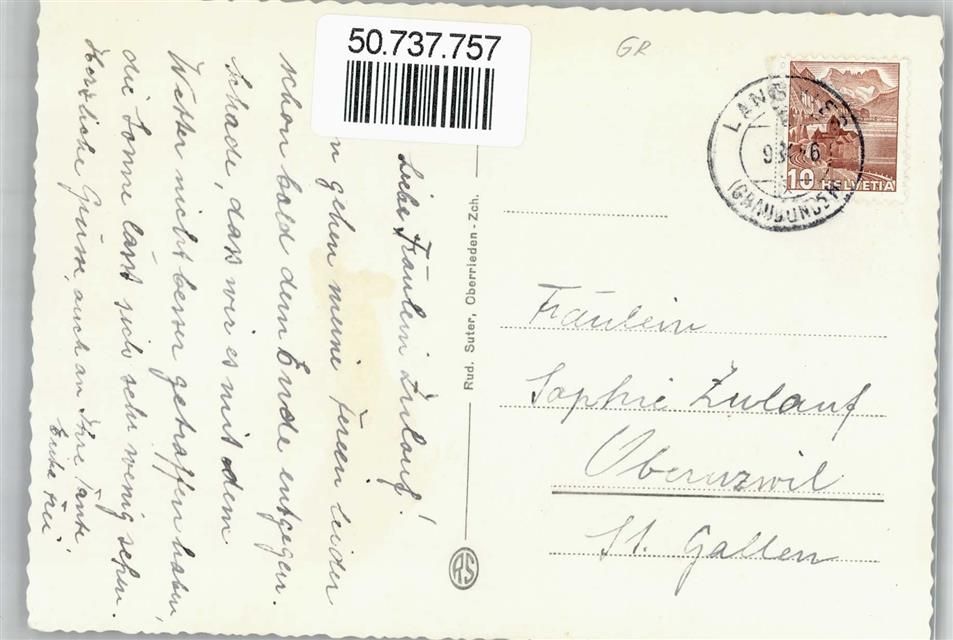 50.737.757
GR
LANGWIES
(GRAUBÜNDEN)
10 HELVETIA
Liebe Fräulein Zulauf!
n gehen meine Ferien leider
schon bald dem Ende entgegen.
Schade, dass wir es mit dem
Wetter nicht besser getroffen haben,
die Sonne lässt sich sehr wenig sehen.
Herzliche Grüsse, auch an Ihre Tante
Frei
Rud. Suter, Oberrieden-Zch.
RS
Fräulein
Sophie Zulauf
Oberuzwil
St. Gallen